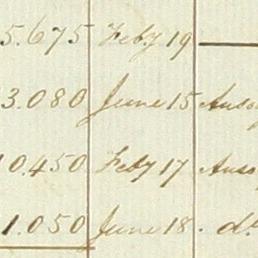 5.675 Feby 19
3.080 June 15
10.450 Feby 17
1.050 June 18. do